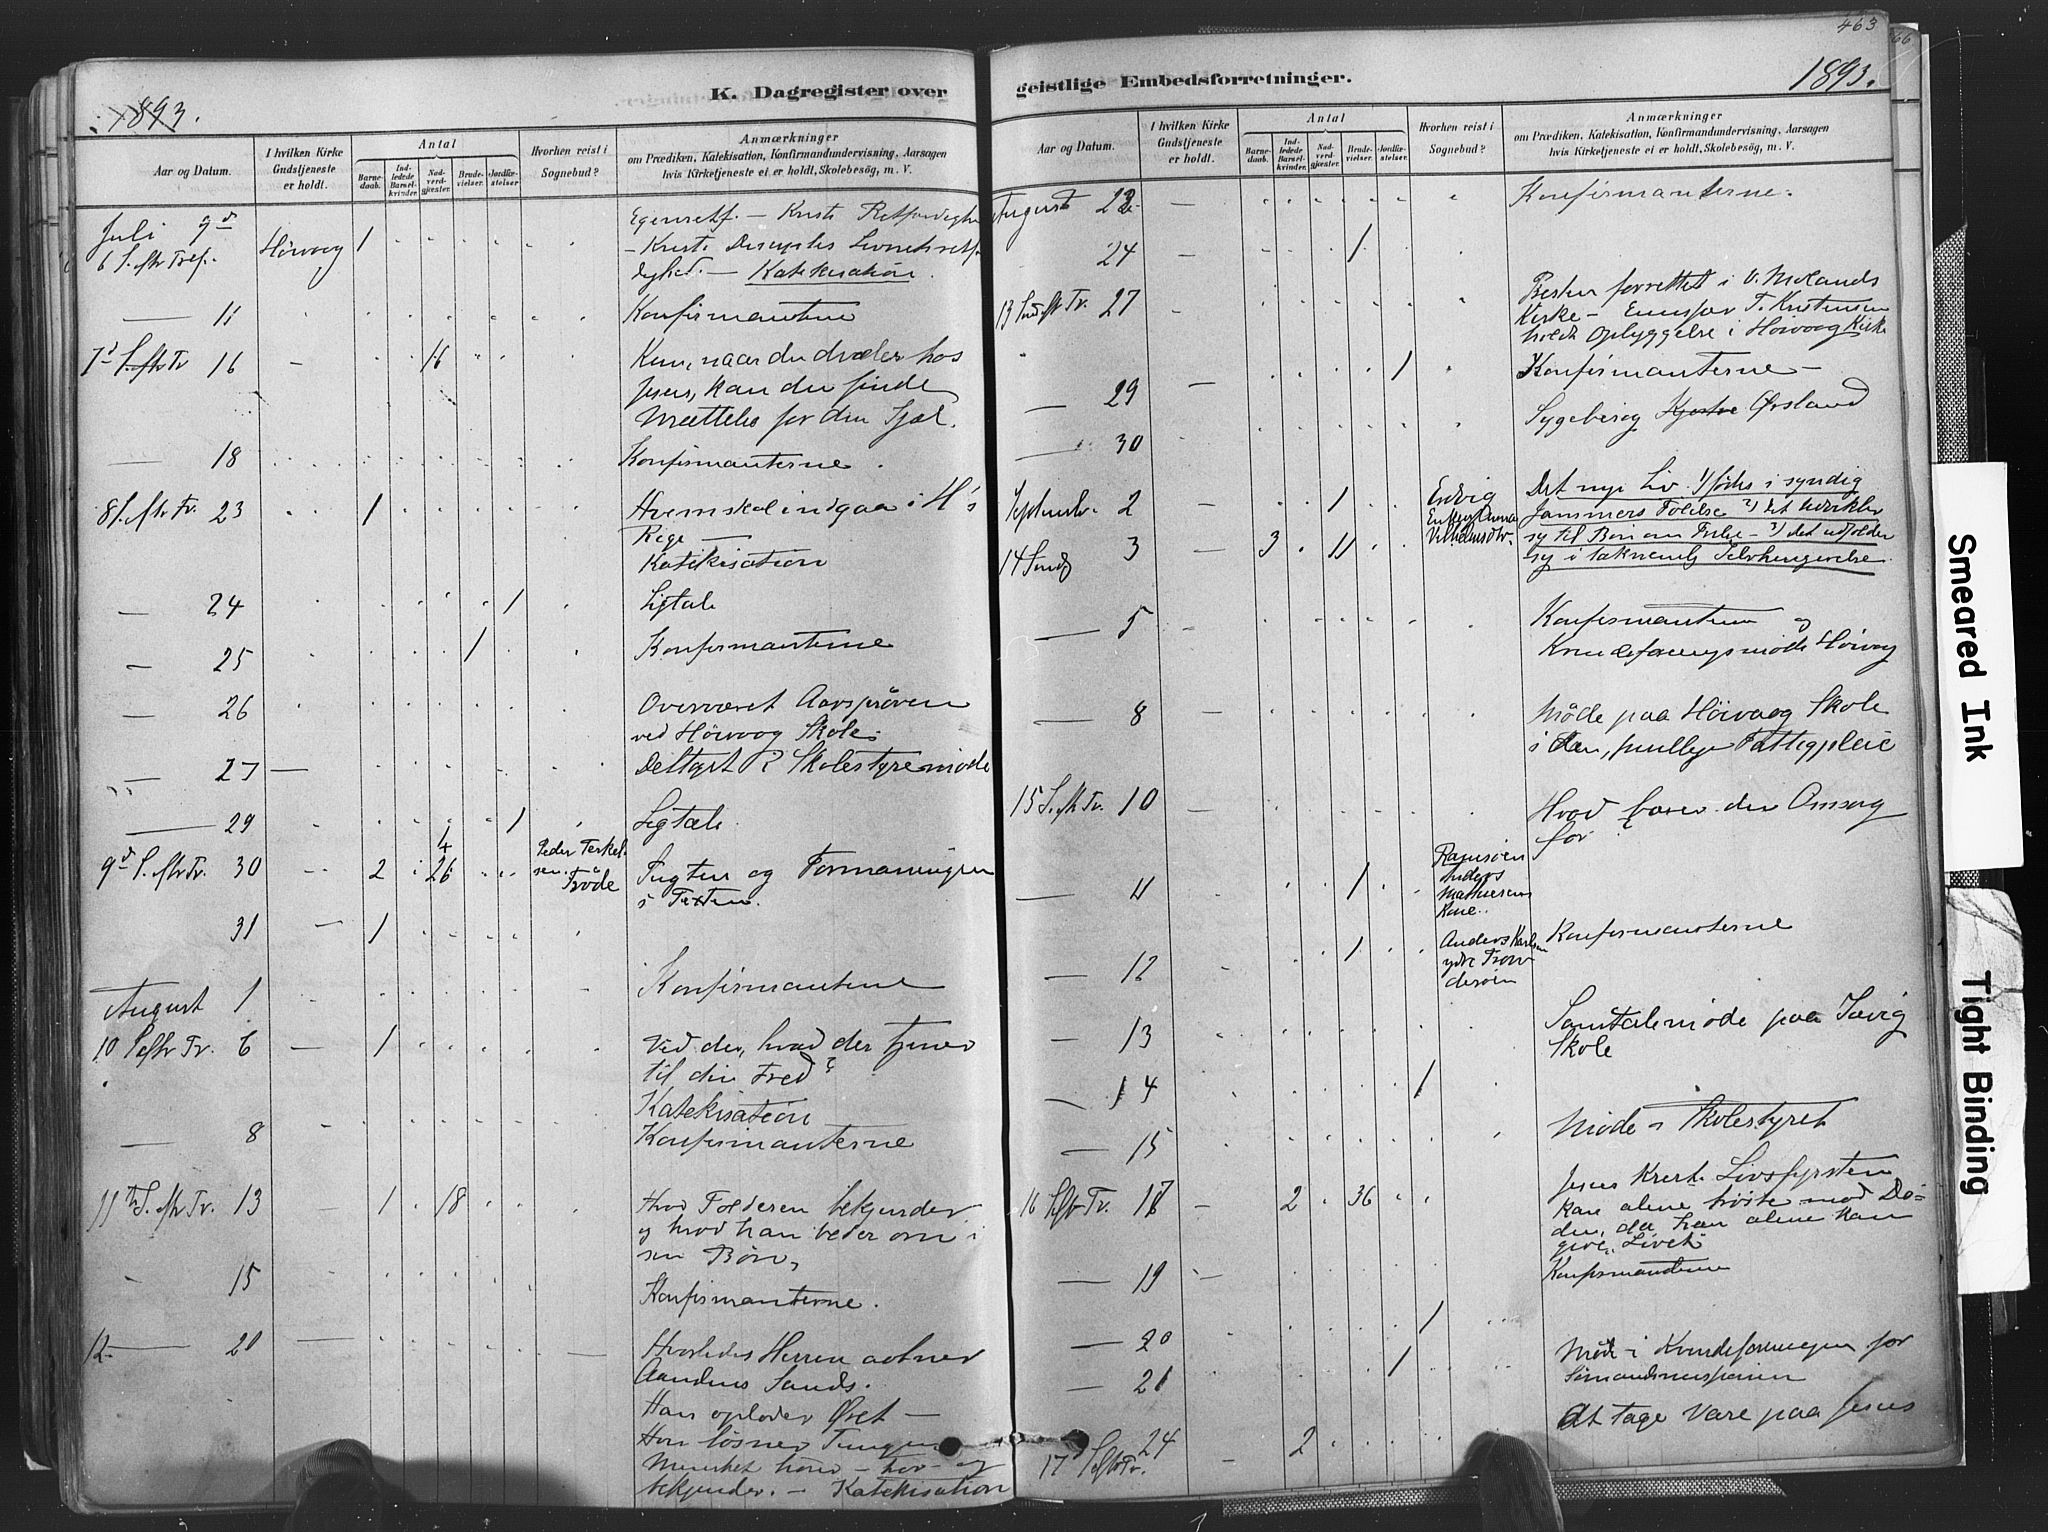 463
66
1893.
K. Dagregister over
geistlige Embedsforretninger.
1893.
Aar og Datum.
I hvilken Kirke Gudstjeneste er holdt.
Antal
Barnedaab.
Indledede Barselkvinder.
Nadverdgjester.
Brudevielser.
Jordfæstelser.
Hvorhen reist i Sognebud?
Anmærkninger
om Prædiken, Katekisation, Konfirmandundervisning, Aarsagen
hvis Kirketjeneste ei er holdt, Skolebesøg, m. V.
Juli 9
6 S. eftr Tref. Høivaag 1
Egenretf. — Kristi Retfærdighe
— Kristi Disciples Livsretf
dighed. — Katekisation.
— 11 Konfirmanterne
7 S. eftr Tr 16 — 16 Kun, naar du dvæler hos
Jesus, kan du finde
Mættelse for din Sjæl.
— 18 Konfirmanterne.
8 S. eftr Tr. 23 1 Hvem skal indgaa i H's
Rige —
Katekisation
— 24 1 Ligtale
— 25 1 Konfirmanterne
— 26 Overværet Aarsprøven
ved Høivaag Skole
— 27 — Skolestyremøde
— 29 1 Ligtale.
4
9 S. eftr Tr. 30 2 26 Peder Terkelsen Trøde og Formaningen
i Texten.
31 — 1
August 1 Konfirmantene
10 S eftr Tr. 6 — 1 Ved du, hvad der tjener
til din Fred?
Katekisation
— 8 Konfirmanterne
11 S. eftr Tr. 13 1 18 Hvad Faderen bekjender
og hvad han beder om i
sin Bøn,
15 Konfirmanterne.
12 — 20 — Hvorledes Herren aabner
Aandens Sands.
Han oplader Øret —
Han løsner Tungen
Mennesket hører — tror og
bekjender. — Katekisation
Aar og Datum.
I hvilken Kirke Gudstjeneste er holdt.
Antal
Barnedaab.
Indledede Barselkvinder.
Nadverdgjester.
Brudevielser.
Jordfæstelser.
Hvorhen reist i Sognebud?
Anmærkninger
om Prædiken, Katekisation, Konfirmandundervisning, Aarsagen
hvis Kirketjeneste ei er holdt, Skolebesøg, m. V.
August 22 — Konfirmanterne.
24 — 1
13 Snd eft Tr. 27 forrettet i V. Molands
Kirke — T. Kristensen
holdt Opbyggelse i Høivaag Kirke
1
— 29 — Konfirmanterne —
— 30 Sygebesøg Ørsland
Septembr. 2 — 1
Det nye Liv 1) fødes i syndig
Jammers Følelse 2) det udvikler
sig til Bøn om Frelse — 3) det udfolder
sig i taknemlig Selvhengivelse.
14 Sond 3 3 11
— 5 Konfirmanterne og
Kvindeforeningsmøde Høivaag
— 8 Møde paa Høivaag Skole
i Fattigpleie
15 S. eft Tr. 10 — Hvad bærer du Omsorg
for?
— 11 1 Ramsøen
Anders
Mathiesens
Kone.
— 12 1 Anders Karlsen
ydre Konfirmanterne
— 13 Samtalemøde paa Sævig
Skole
— 14 1
— 15 Møde i Skolestyret
16 S eft Tr. 17 — 2 36 Jesus Krist. Livsfyrsten
kan alene trøste mod Dø-
den, da han alene kan
give Livet
— 19 — Konfirmanterne
1
— 20 Møde i Kvindeforeningen for
Sømandsmissionen
— 21 1
17 S eft Tr. 24 — 2 At tage Vare paa Jesus
Smeared Ink
Tight Binding